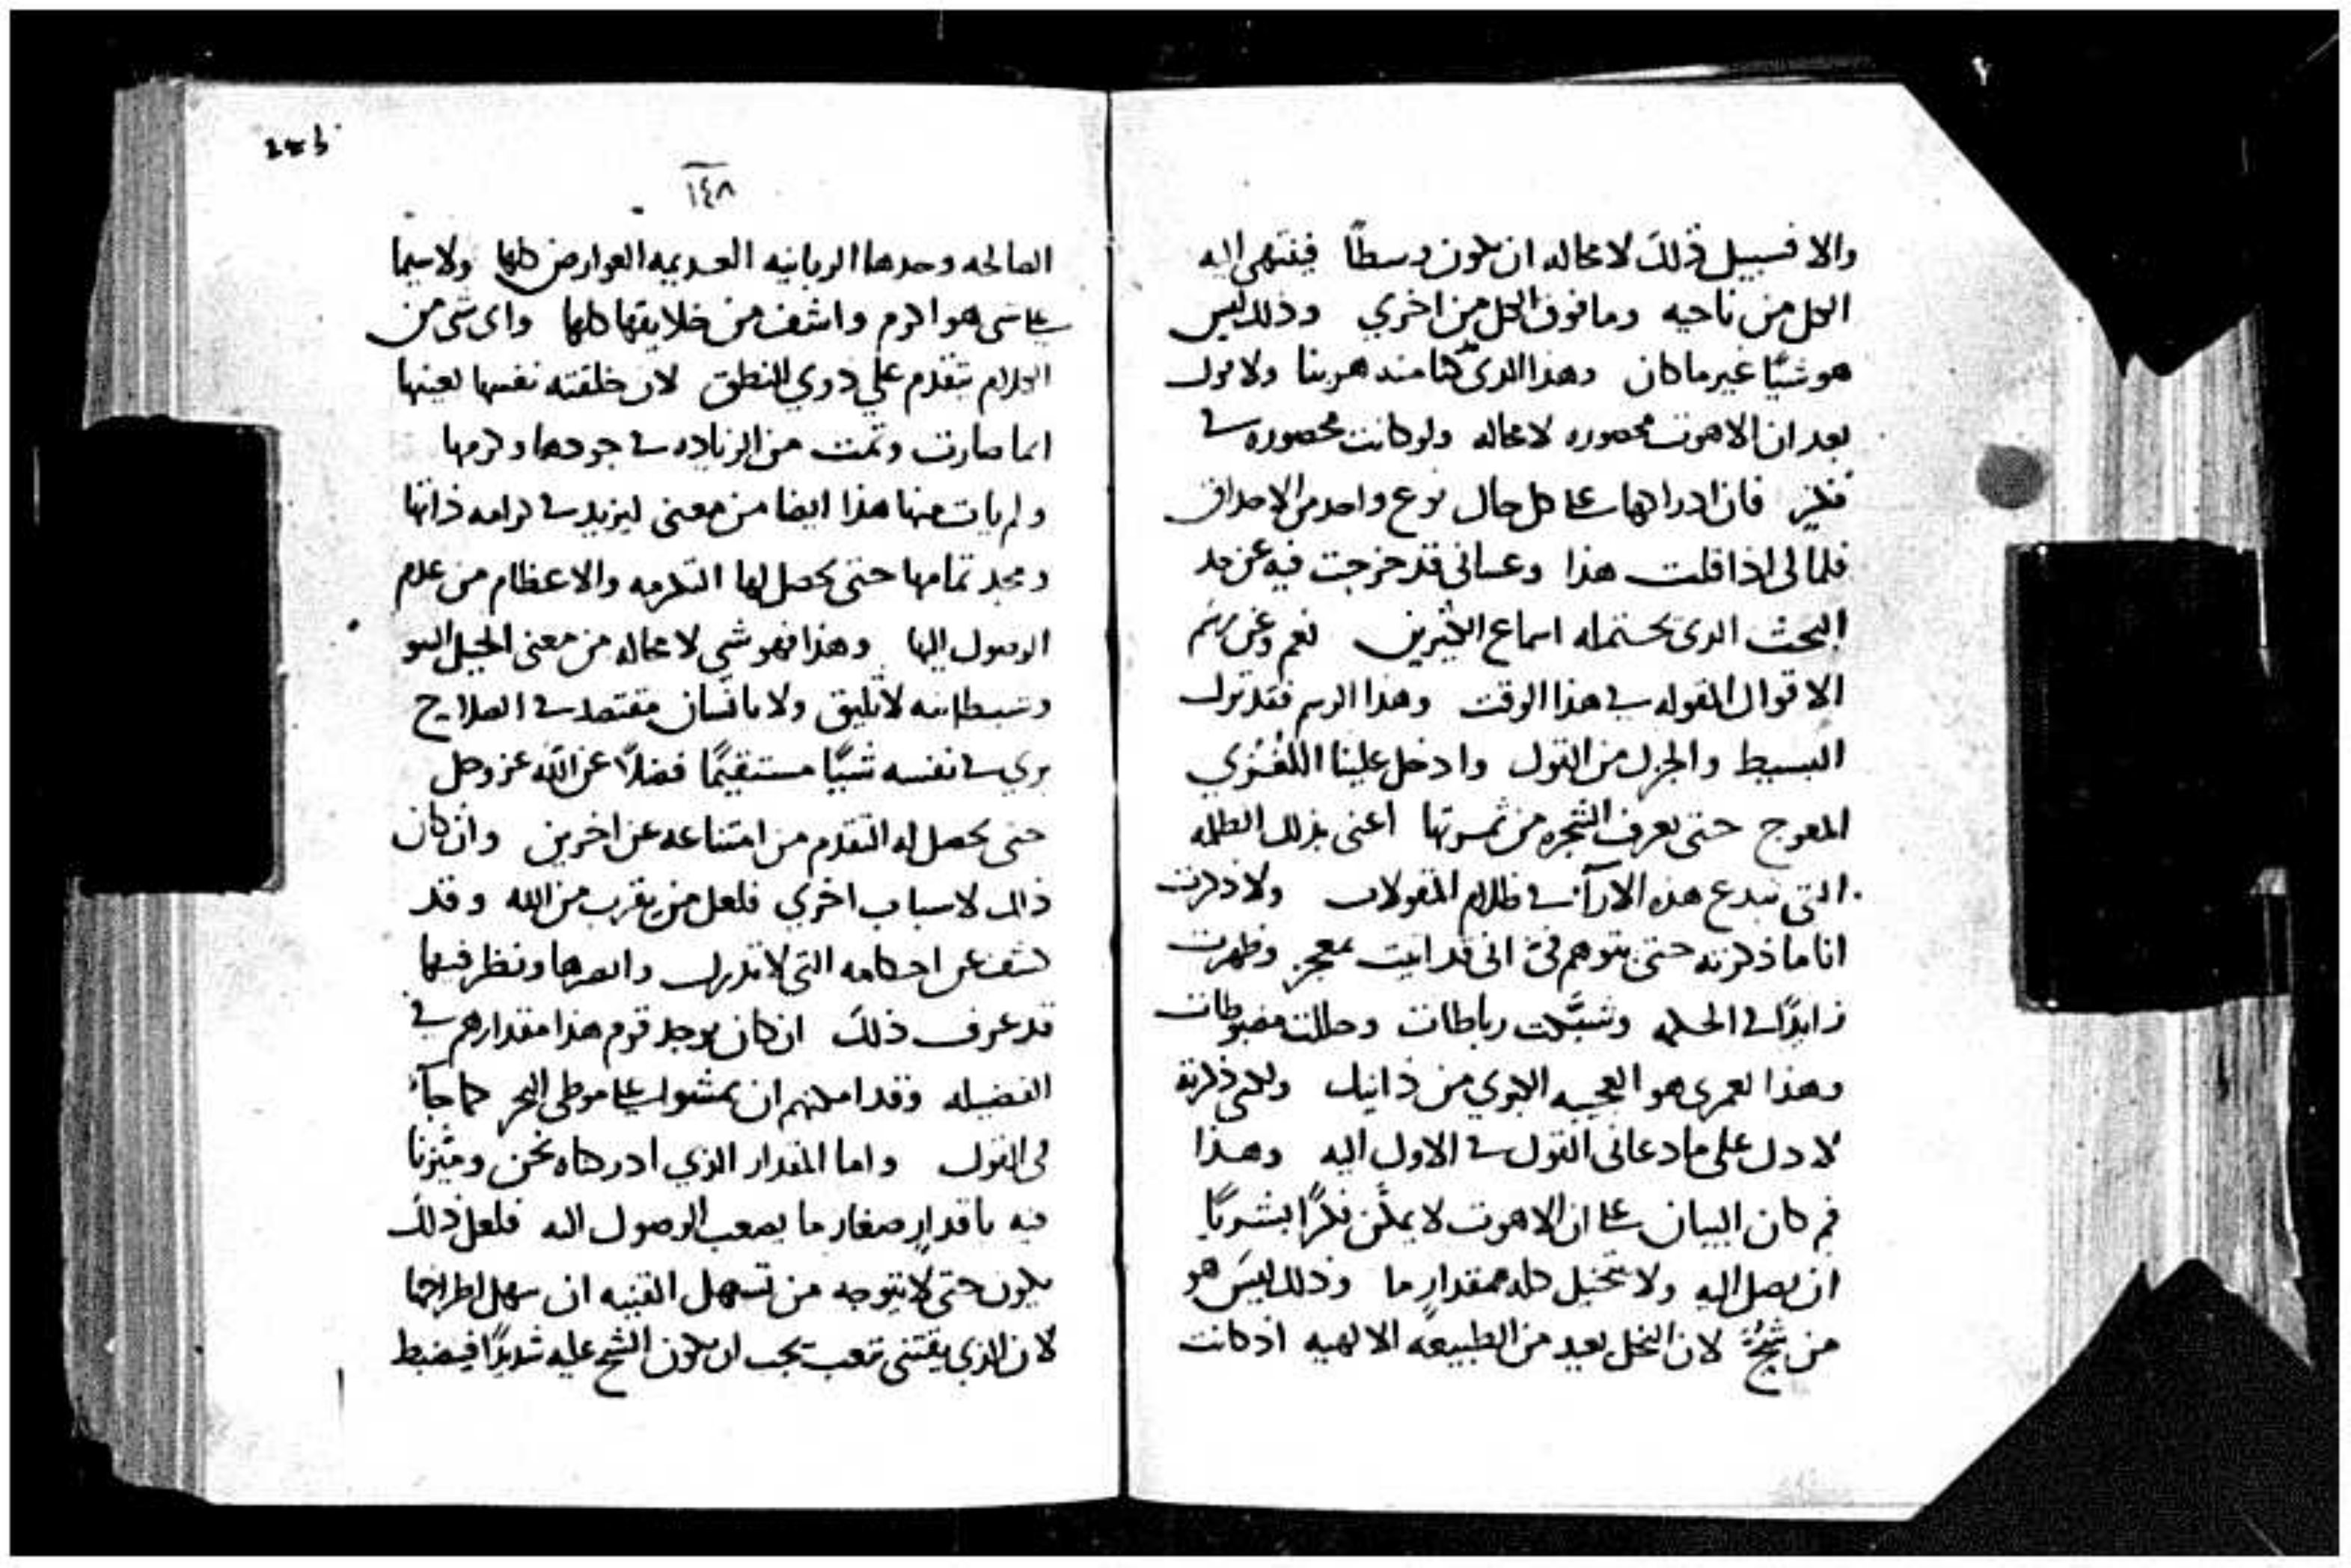 والا فسبيل ذلك لا محاله ان يكون وسطًا فينتهي اليه
الكل من ناحيه وما فوق الكل من اخري وذلك ليس
هو شيًا غير ما كان وهذا الدى كنا منه هربنا ولا نقول
بعد ان الاهوت محصوره لا محاله ولو كانت محصوره في
فكرٍ فان ادراكها على كل حال نوع واحد من الاحداق
فلمالى اذا قلت هذا وعسانى قد خرجت فيه عن حد
البحث الدى تحتمله اسماع الكثيرين نعم وعن رسم
الاقوال المقوله في هذا الوقت وهذا الرسم فقد ترك
البسيط والجزل من القول وادخل علينا اللغُزي
المعوج حتى تعرف الشجره من ثمرتها اعنى بذلك الظلمه
التى تبدع هذه الارآ في ظلام المقولات ولا ذكرت
انا ما ذكرته حتى يتوهم فيّ انى قد اتيت بمعجز وظهرت
زايدًا في الحكمه وشبّكت رباطات وحللت مضبوطات
وهذا لعمرى هو العجيبه الكبري من دانيل ولكنى ذكرته
لادل على ما دعانى القول في الاول اليه وهذا
فهو كان البيان على ان الاهوت لا يمكن فكرًا بشريًا
ان يصل اليه ولا يتخيل كله بمقدارٍ ما وذلك ليس هو
من شحٍّ لان البخل بعيد من الطبيعه الالهيه اذ كانت
١٤٨
الصالحه وحدها الربانيه العديمه العوارض كلها ولا سيما
على شى هو اكرم واشف من خلايقها كلها واى شى من
الكلام يتقدم علي دوي النطق لان خلقته نفسها بعينها
انما صارت وتمت من الزياده في جودها وكرمها
ولم يات منها هذا ايضا من معنى ليزيد في كرامه ذاتها
ومجد تمامها حتى يحصل لها التكرمه والاعظام من عدم
الوصول اليها وهذا فهو شي لا محاله من معنى الحيل
وشيطانيه لا تليق ولا بانسان مقتصد في الصلاح
يري في نفسه شيًا مستقيمًا فضلاً عن الله عز وجل
حتى يحصل له التقدم من امتناعه عن اخرين وان كان
ذلك لاسباب اخري فلعل من يقرب من الله وقد
كشف عن احكامه التى لا تدرك وابصرها ونظر فيها
قد عرف ذلك ان كان يوجد قوم هذا مقدارهم في
الفضيله وقد امكنهم ان يمشوا على موطى البحر كما جآ
فى القول واما المقدار الذي ادركناه نحن وميّزنا
فيه باقدارٍ صغار ما يصعب الوصول اليه فلعل ذلك
يكون حتى لا يتوجه من تسهل القنيه ان سهل اطراحها
لان الذي يقتنى بتعب يجب ان يكون الشح عليه شديدًا فيضبط